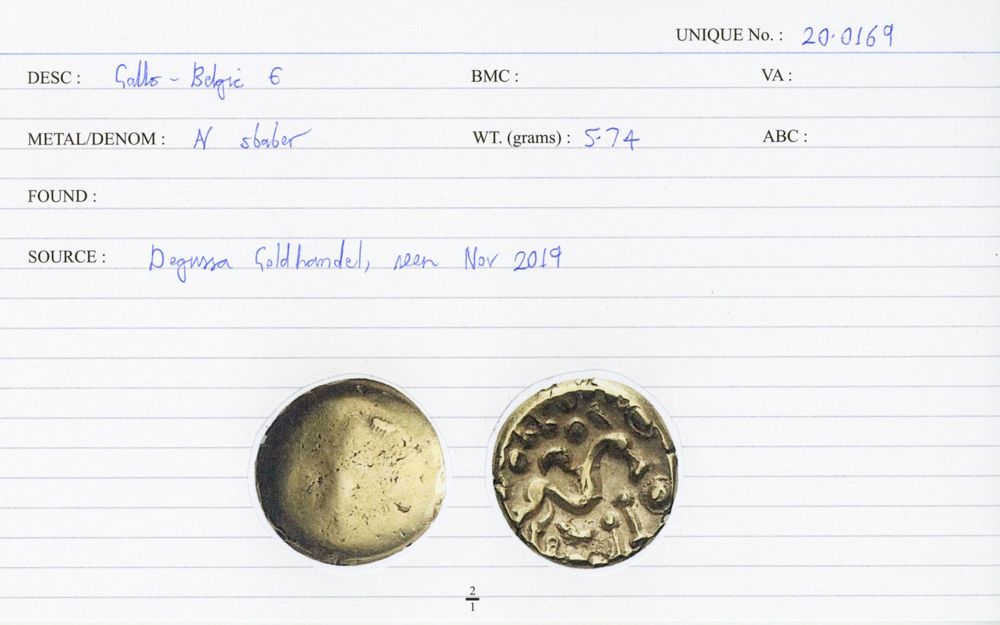 UNIQUE No. : 20.0169
DESC : Gallo-Belgic E BMC : VA :
METAL/DENOM : N stater WT. (grams) : 5.74 ABC :
FOUND :
SOURCE : Degussa Goldhandel, seen Nov 2019
2
1